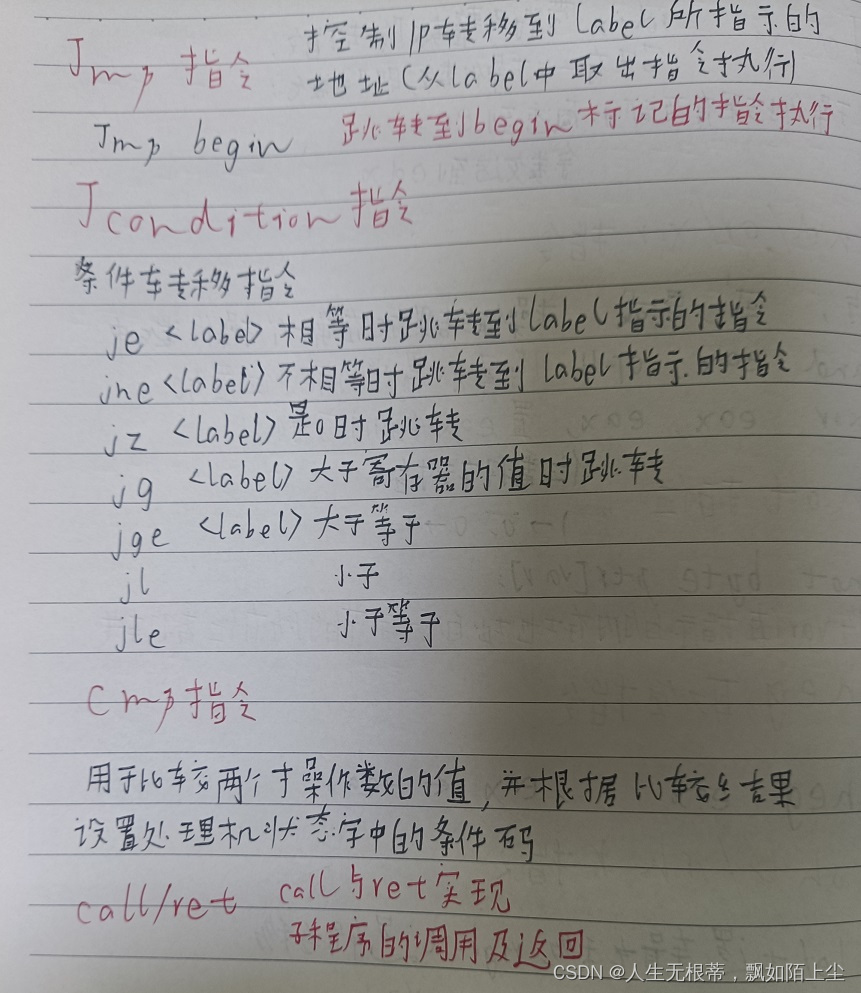 Jmp 指令 控制IP转移到label所指示的
地址(从label中取出指令执行)
Jmp begin 跳转到begin标记的指令执行
Jcondition指令
条件转移指令
je <label> 相等时跳转到label指示的指令
jne <label> 不相等时跳转到label指示的指令
jz <label> 是0时跳转
jg <label> 大于寄存器的值时跳转
jge <label> 大于等于
jl 小于
jle 小于等于
Cmp指令
用于比较两个操作数的值,并根据比较结果
设置处理机状态字中的条件码
call/ret call与ret实现
子程序的调用及返回
CSDN @人生无根蒂，飘如陌上尘